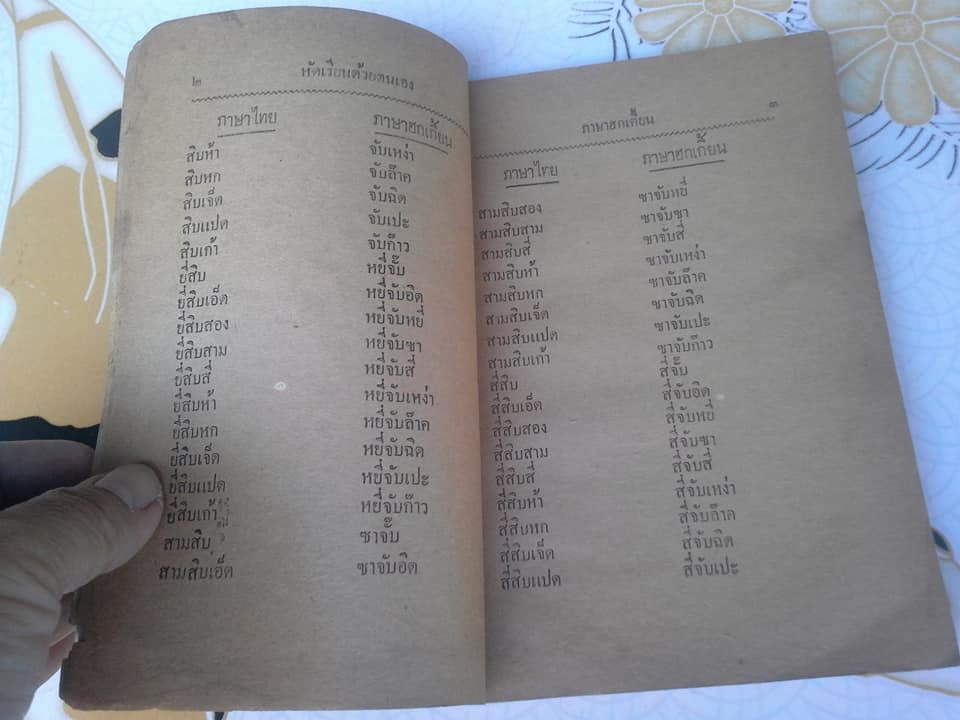 ๒ หัดเรียนด้วยตนเอง
ภาษาไทย ภาษาฮกเกี้ยน
สิบห้า จับเหง่า
สิบหก จับล๊าค
สิบเจ็ด จับฉิด
สิบแปด จับเปะ
สิบเก้า จับก๊าว
ยี่สิบ หยี่จั๊บ
ยี่สิบเอ็ด หยี่จับอิด
ยี่สิบสอง หยี่จับหยี่
ยี่สิบสาม หยี่จับซา
ยี่สิบสี่ หยี่จับสี่
ยี่สิบห้า หยี่จับเหง่า
ยี่สิบหก หยี่จับล๊าค
ยี่สิบเจ็ด หยี่จับฉิด
ยี่สิบแปด หยี่จับเปะ
ยี่สิบเก้า หยี่จับก๊าว
สามสิบ ซาจั๊บ
สามสิบเอ็ด ซาจับอิด
ภาษาฮกเคี้ยน ๓
ภาษาไทย ภาษาฮกเกี้ยน
สามสิบสอง ซาจับหยี่
สามสิบสาม ซาจับซา
สามสิบสี่ ซาจับสี่
สามสิบห้า ซาจับเหง่า
สามสิบหก ซาจับล๊าค
สามสิบเจ็ด ซาจับฉิด
สามสิบแปด ซาจับเปะ
สามสิบเก้า ซาจับก๊าว
สี่สิบ สี่จั๊บ
สี่สิบเอ็ด สี่จับอิด
สี่สิบสอง สี่จับหยี่
สี่สิบสาม สี่จับซา
สี่สิบสี่ สี่จับสี่
สี่สิบห้า สี่จับเหง่า
สี่สิบหก สี่จับล๊าค
สี่สิบเจ็ด สี่จับฉิด
สี่สิบแปด สี่จับเปะ